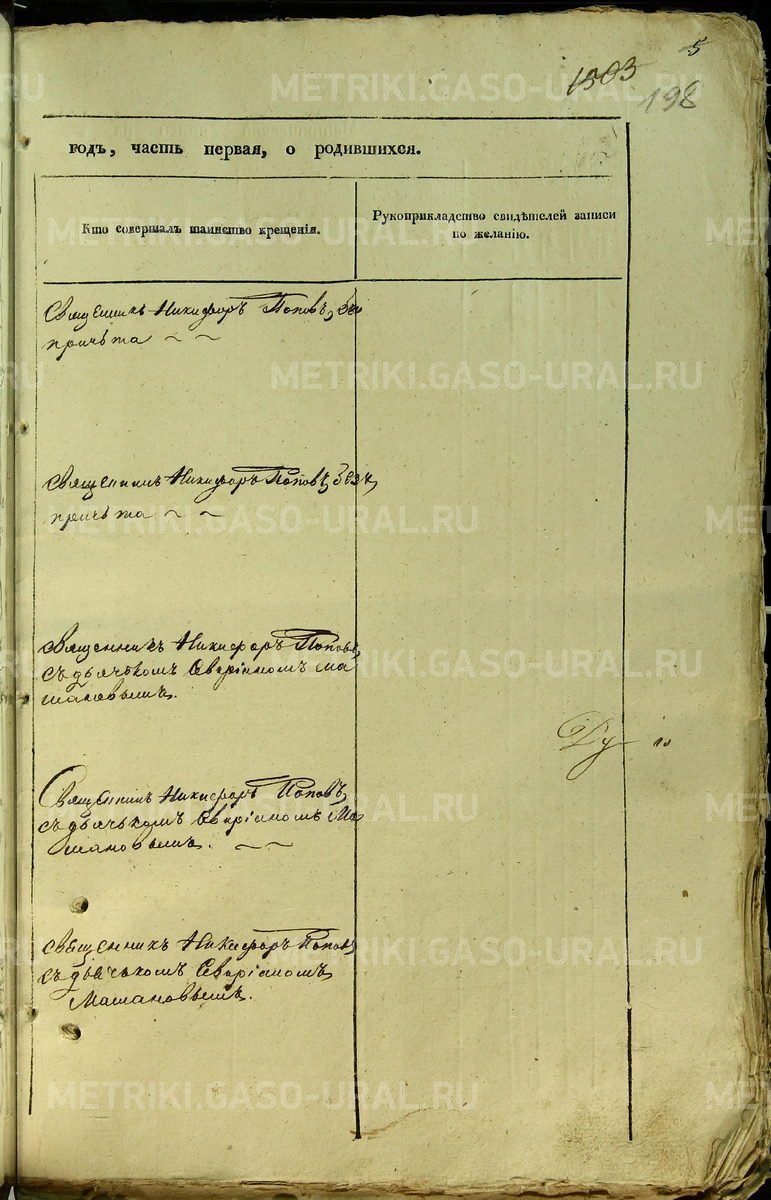 5
1503
198
годъ, часть первая, о родившихся.
Кто совершалъ таинство крещенія.
Рукоприкладство свидѣтелей записи
по желанію.
Священникъ Никифоръ Поповъ, безъ
причѣта
Священникъ Никифоръ Поповъ, безъ
причѣта
Священникъ Никифоръ Поповъ,
съ дьячькомъ Аверіаномъ Ма
шановымъ.
Священникъ Никифоръ Поповъ,
съ дьячькомъ Аверіаномъ Ма
шановымъ.
Священникъ Никифоръ Поповъ
съ дьячькомъ Аверіаномъ
Машановымъ.
METRIKI.GASO-URAL.RU